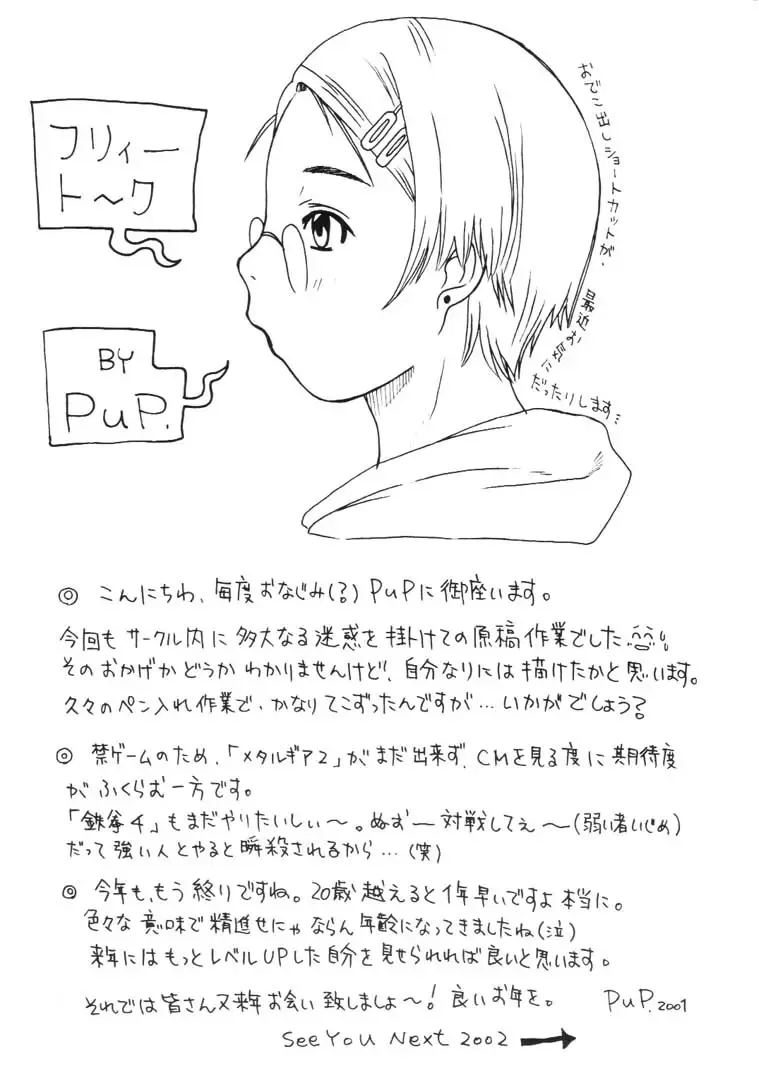 フリィー
ト〜ク
BY
PuP.
おでこ出しショートカットが、
最近お
だったりします…
◎ こんにちわ、毎度おなじみ(?)PuPに御座います。
今回もサークル内に多大なる迷惑を掛けての原稿作業でした
そのおかげかどうかわかりませんけど、自分なりには描けたかと思います。
久々のペン入れ作業で、かなりてこずったんですが…いかがでしょう?
◎ 禁ゲームのため、「メタルギア2」がまだ出来ず、CMを見る度に期待度
がふくらむ一方です。
「鉄拳4」もまだやりたいしぃ〜。ぬお一対戦してぇ〜(弱い者いじめ)
だって強い人とやると瞬殺されるから…(笑)
◎ 今年も、もう終りですね。20歳越えると1年早いですよ本当に。
色々な意味で精進せにゃならん年齢になってきましたね(泣)
来年にはもっとレベルUPした自分を見せられれば良いと思います。
それでは皆さん又来年お会い致しましょ〜!良いお年を。 PuP.2001
See You Next 2002 →